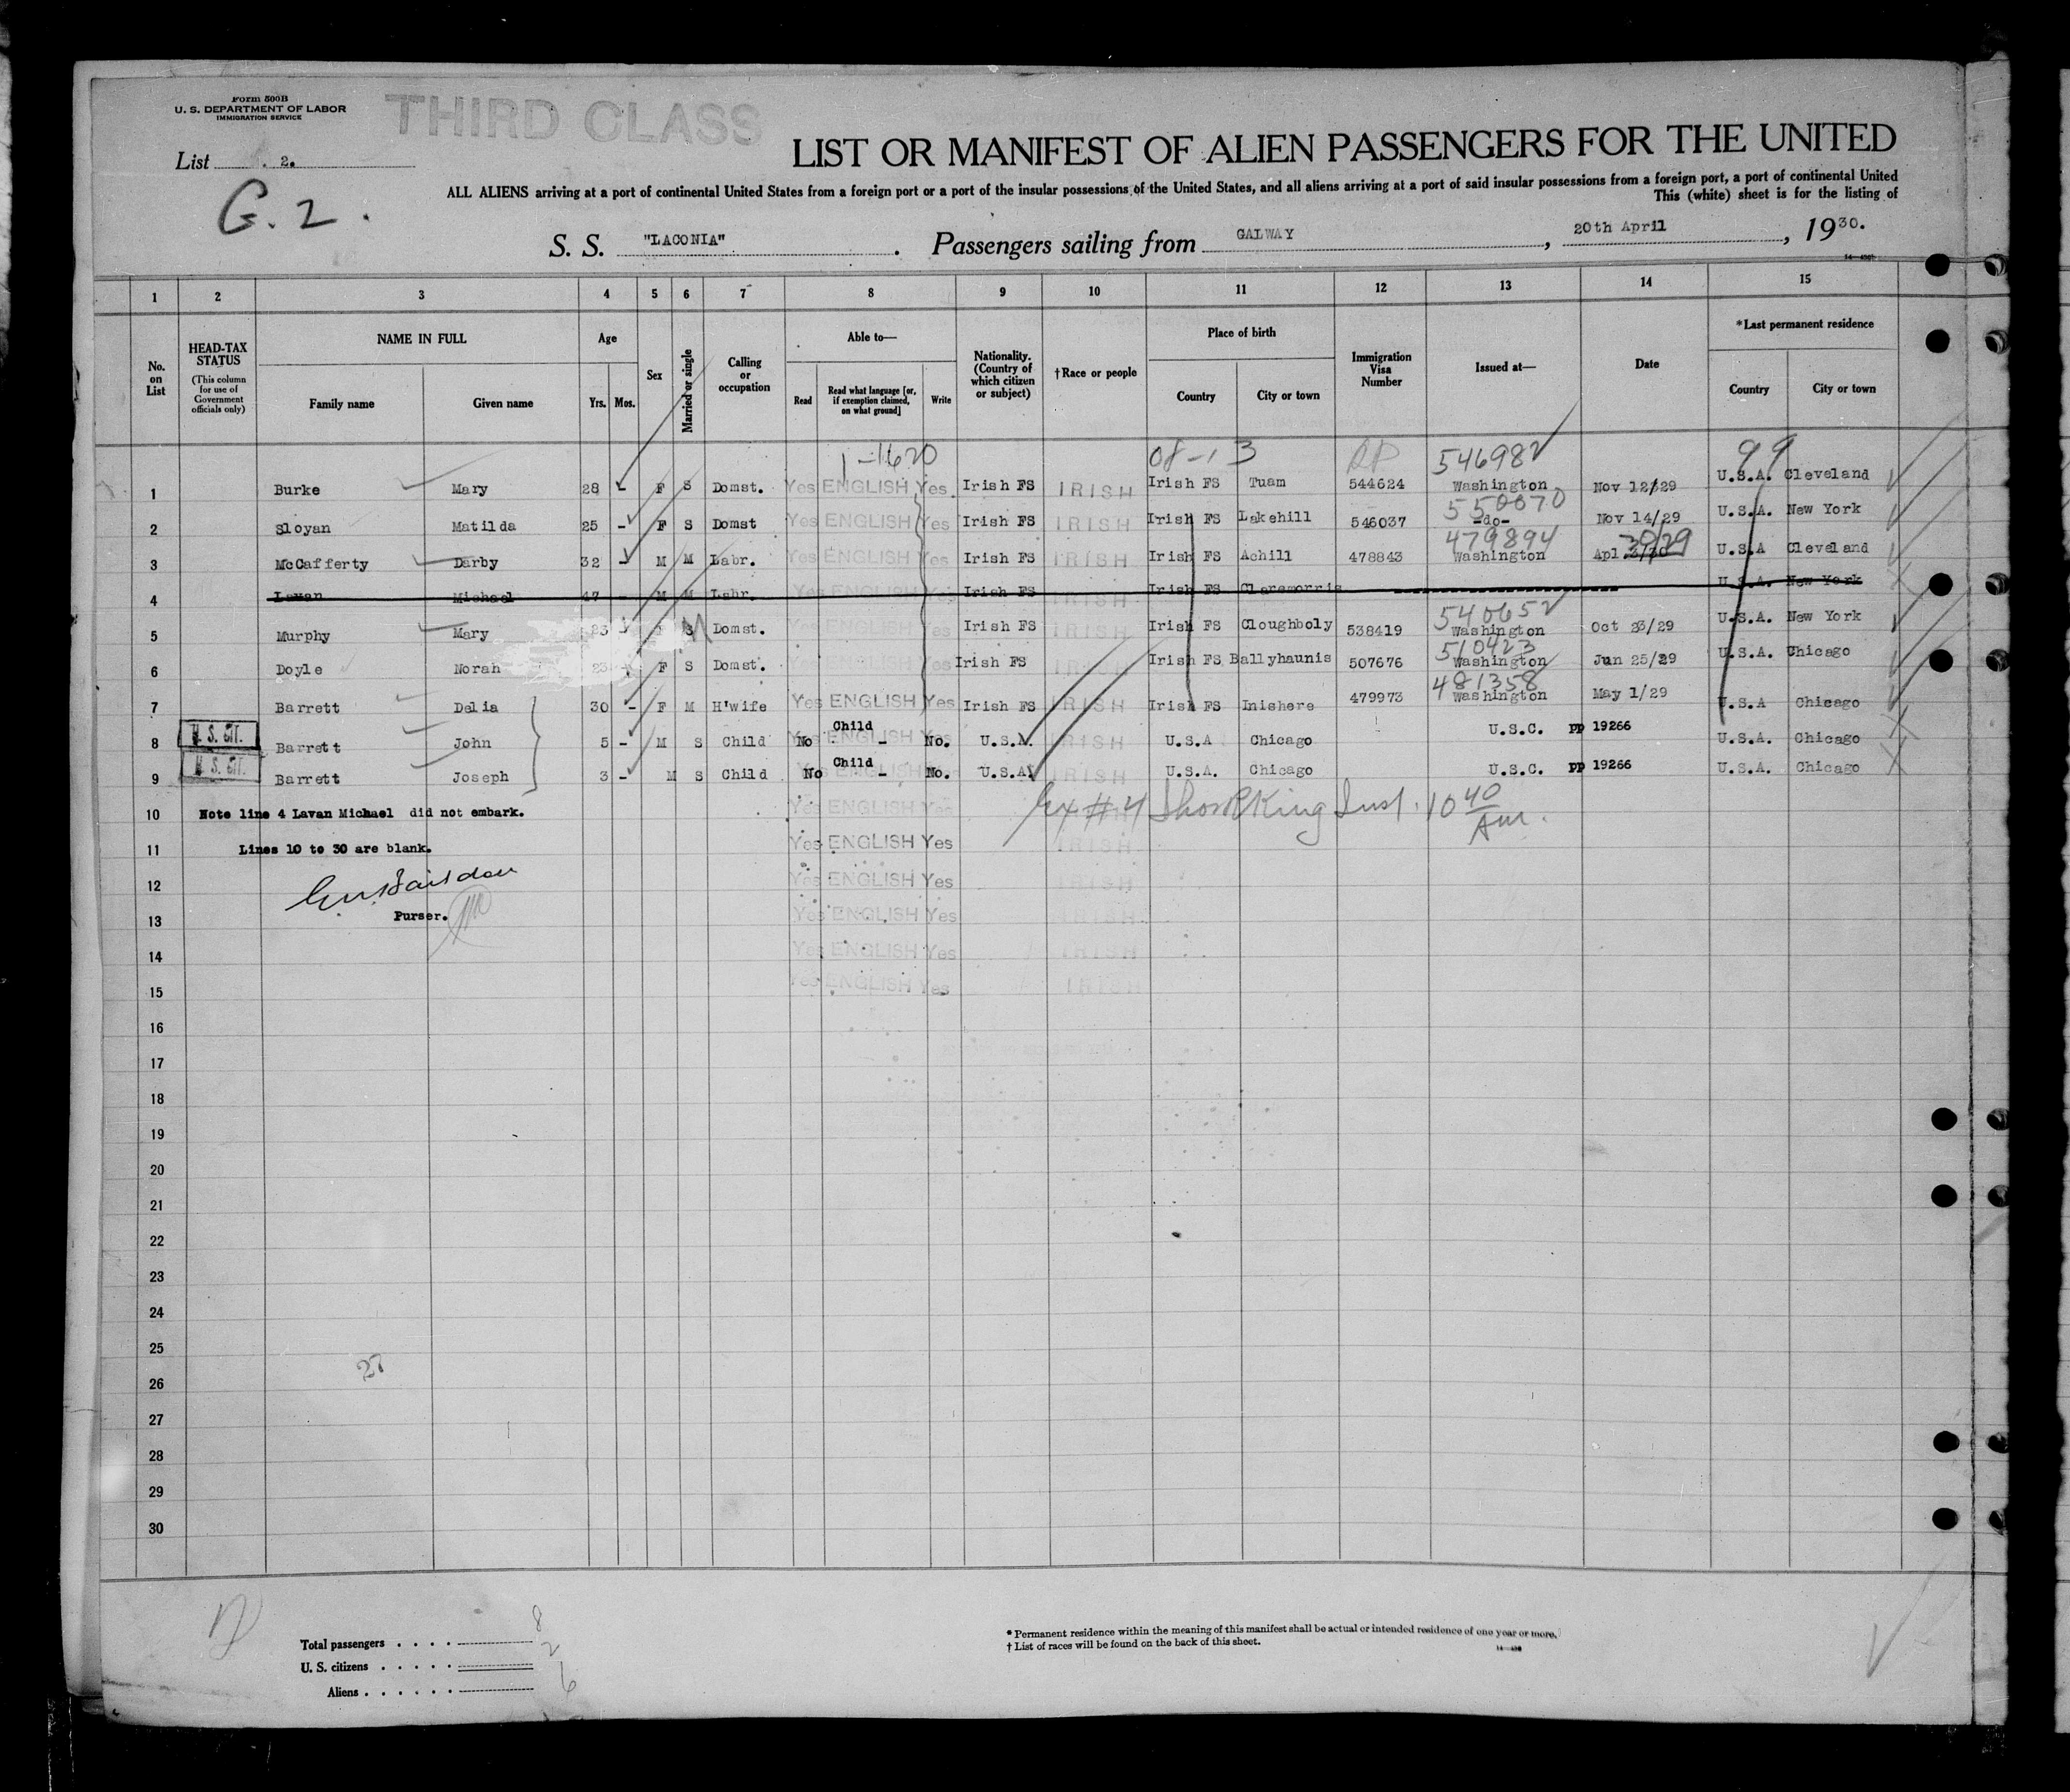 Form 500B
U. S. DEPARTMENT OF LABOR
IMMIGRATION SERVICE
THIRD CLASS
List 2.
G. 2.
LIST OR MANIFEST OF ALIEN PASSENGERS FOR THE UNITED
ALL ALIENS arriving at a port of continental United States from a foreign port or a port of the insular possessions of the United States, and all aliens arriving at a port of said insular possessions from a foreign port, a port of continental United
This (white) sheet is for the listing of
S. S. "LACONIA". Passengers sailing from GALWAY, 20th April, 1930.
1 2 3 4 5 6 7 8 9 10 11 12 13 14 15
No. on List
HEAD-TAX STATUS (This column for use of Government officials only)
NAME IN FULL Family name Given name
Age Yrs. Mos.
Sex
Married or single
Calling or occupation
Able to— Read Read what language [or, if exemption claimed, on what ground] Write
Nationality. (Country of which citizen or subject)
†Race or people
Place of birth Country City or town
Immigration Visa Number
Issued at—
Date
*Last permanent residence Country City or town
1-1620 08-13 546982 99
1 Burke Mary 28 - F S Domst. Yes ENGLISH Yes Irish FS IRISH Irish FS Tuam 544624 Washington Nov 12/29 U.S.A. Cleveland
550070
2 Sloyan Matilda 25 - F S Domst Yes ENGLISH Yes Irish FS IRISH Irish FS Lakehill 546037 -do- Nov 14/29 U.S.A. New York
479894 30/29
3 McCafferty Darby 32 - M M Labr. Yes ENGLISH Yes Irish FS IRISH Irish FS Achill 478843 Washington Apl U.S.A Cleveland
4 Lavan Michael 47 - M M Labr. Yes ENGLISH Yes Irish FS IRISH Irish FS Claremorris U.S.A. New York
540652
5 Murphy Mary 23 F S Domst. Yes ENGLISH Yes Irish FS IRISH Irish FS Cloughboly 538419 Washington Oct 23/29 U.S.A. New York
510423
6 Doyle Norah 23 F S Domst. Yes ENGLISH Yes Irish FS IRISH Irish FS Ballyhaunis 507676 Washington Jun 25/29 U.S.A. Chicago
481358
7 Barrett Delia 30 - F M H'wife Yes ENGLISH Yes Irish FS IRISH Irish FS Inishere 479973 Washington May 1/29 U.S.A Chicago
U. S. CIT.
8 Barrett John 5 - M S Child No Child - No. U.S.A. IRISH U.S.A Chicago U.S.C. pp 19266 U.S.A. Chicago
U. S. CIT.
9 Barrett Joseph 3 - M S Child No Child - No. U.S.A. IRISH U.S.A. Chicago U.S.C. pp 19266 U.S.A. Chicago
10 Note line 4 Lavan Michael did not embark. Yes ENGLISH Yes IRISH
11 Lines 10 to 30 are blank. Yes ENGLISH Yes IRISH
12 Yes ENGLISH Yes IRISH
Purser.
13 Yes ENGLISH Yes IRISH
14 Yes ENGLISH Yes IRISH
15 Yes ENGLISH Yes IRISH
16
17
18
19
20
21
22
23
24
25
26
27
28
29
30
Total passengers . . . . 8
U. S. citizens . . . . . 2
Aliens . . . . . . 6
* Permanent residence within the meaning of this manifest shall be actual or intended residence of one year or more.
† List of races will be found on the back of this sheet.